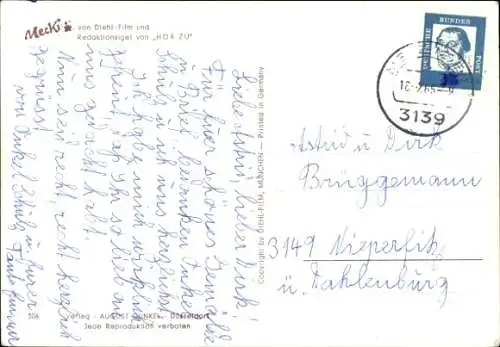 Mecki
von Diehl-Film und
Redaktionsigel von „HÖR ZU"
Liebe Astrid, lieber Dirk!
Für Euer schönes Gemälde
u. Brief bedanken Onkel
Schulz u. ich uns herzlichst.
Ich habe mich wirklich
gefreut, daß Ihr so lieb an
uns gedacht habt.
Nun seid recht, recht herzlich
gegrüßt
von Onkel Schulz u. Eurer
Tante
Copyright by DIEHL-FILM, MÜNCHEN — Printed in Germany
DEUTSCHE
BUNDES
POST
15
3139
Astrid u. Dirk
Brüggemann
3149 Nieperfitz
ü. Dahlenburg
306
Verlag - AUGUST GUNKEL - Düsseldorf
Jede Reproduktion verboten